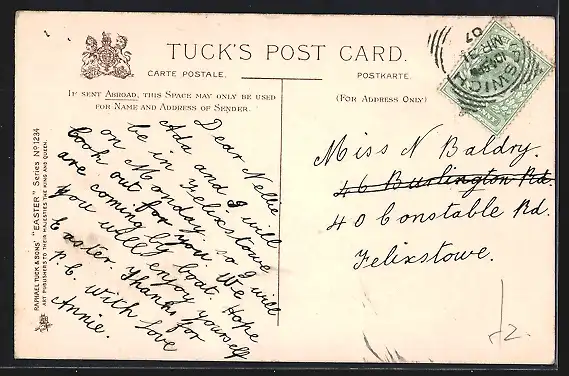 TUCK'S POST CARD.
CARTE POSTALE.
POSTKARTE.
IF SENT ABROAD, THIS SPACE MAY ONLY BE USED
FOR NAME AND ADDRESS OF SENDER.
(FOR ADDRESS ONLY)
Dear Nellie
Ada and I will
be in Felixstowe
on Monday. so I will
look out for you. We
are coming by boat. Hope
you will enjoy yourself
Easter. Thanks for
P.C. with love
Annie.
Miss N Baldry.
46 Burlington Rd.
40 Constable Rd.
Felixstowe.
RAPHAEL TUCK & SONS' "EASTER" Series No 1234
ART PUBLISHERS TO THEIR MAJESTIES THE KING AND QUEEN.
MR 31
07